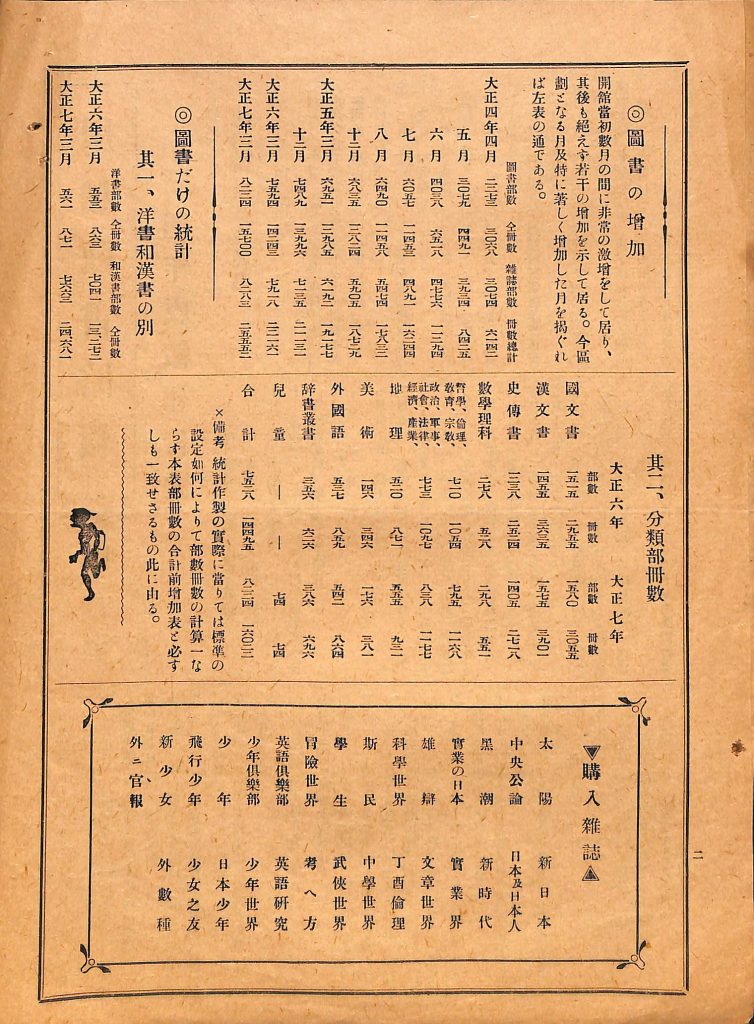 ◎圖書の增加
開舘當初數月の間に非常の激增をして居り、
其後も絕えず若干の增加を示して居る。今區
劃となる月及特に著しく增加した月を揭ぐれ
ば左表の通である。
圖書部數 仝冊數 雜誌部數 冊數總計
大正四年四月 二二七三 三〇六八 三〇七四 六一四二
五月 三〇七九 四四九一 三九三四 八四二五
六月 四〇三八 六五一八 四七七六 一一二九四
七月 六〇五七 一一四三三 四八九一 一六三二四
八月 六四九〇 一二三五八 五四七四 一七八三二
十二月 六八三五 一二八二四 五九〇五 一八七二九
大正五年三月 六九五一 一二九八五 六一九二 一九一七七
十二月 七四八九 一三九九六 七一三五 二一一三一
大正六年三月 七五九四 一四二四三 七九一八 二二一六一
大正七年三月 八二二四 一五七〇〇 八二八三 二五五五二
◎圖書だけの統計
其一、洋書和漢書の別
洋書部數 仝冊數 和漢書部數 仝冊數
大正六年三月 五五三 八六三 七〇四一
大正七年三月 五六一 八七一 七六六三
其二、分類部冊數
大正六年 大正七年
部數 冊數 部數 冊數
國文書 一五一五 二九五五 一五八〇 三〇五五
漢文書 一四五五 三六三五 一五七五 三九〇一
史傳書 一二三八 二五二四 一四〇五 二七一八
數學理科 二七八 五二八 二九八 五五一
哲學、倫理、
敎育、宗敎、 七一〇 一〇五四 七九五 一一六八
政治、軍事、
社會、法律、
經濟、產業、 七七三 一〇九七 八三八 一一七七
地理 五二〇 八七一 五五五 九三一
美術 一四六 三四六 一七六 三八一
外國語 五三七 八五九 五四二 八六四
辞書叢書 三五六 六二六 三八六 六九六
兒童 — — 七四 七四
合計 七五二八 一四四九五 八二二四 一六〇二三
×備考 統計作製の實際に當りては標準の
設定如何によりて部數冊數の計算一な
らす本表部冊數の合計前增加表と必す
しも一致せさるもの此に由る。
購入雜誌
太陽 新日本
中央公論 日本及日本人
黑潮 新時代
實業の日本 實業界
雄辯 文章世界
科學世界 丁酉倫理
斯民 中學世界
學生 武俠世界
冒險世界 考へ方
英語俱樂部 英語硏究
少年俱樂部 少年世界
少年 日本少年
飛行少年 少女之友
新少女 外數種
外ニ官報
二